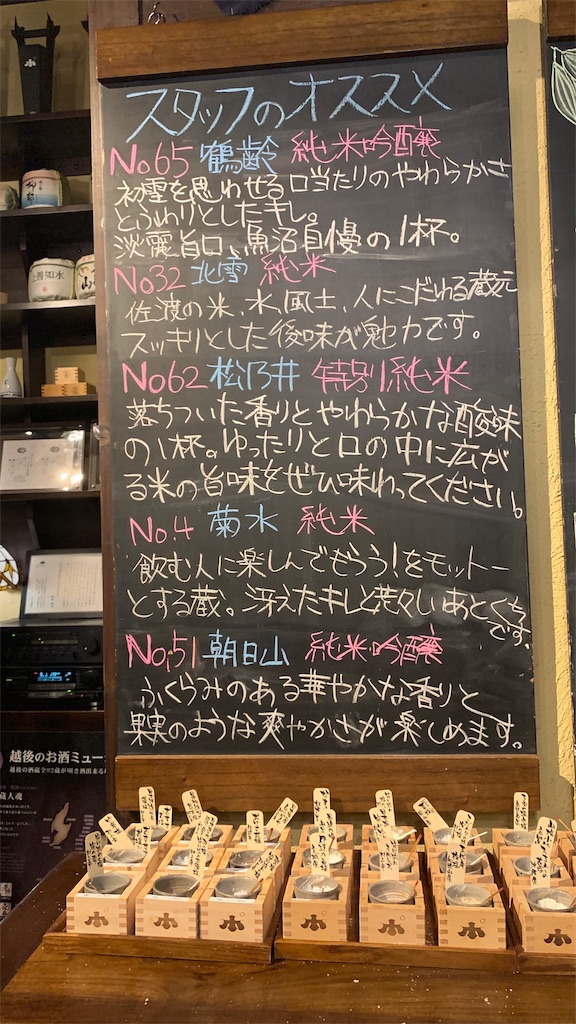 スタッフのオススメ
No65 鶴齢 純米吟醸
初雪を思わせる口当たりのやわらかさ
とふわりとしたキレ。
淡麗旨口、魚沼自慢の1杯。
No32 北雪 純米
佐渡の米、水、風土、人にこだわる蔵元
スッキリとした後味が魅力です。
No62 松乃井 特別純米
落ちついた香りとやわらかな酸味
の1杯。ゆったりと口の中に広が
る米の旨味をぜひ味わってください。
No.4 菊水 純米
飲む人に楽しんでもらう!をモットー
とする蔵。冴えたキレと荒々しいあとくち
です。
No.51 朝日山 純米吟醸
ふくらみのある華やかな香りと
果実のような爽やかさが楽しめます。
上善如水
越後のお酒ミュー
越後の酒蔵全92蔵が唎き酒出来る
蔵人魂